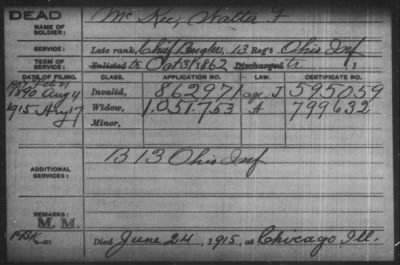 DEAD
NAME OF SOLDIER: Mc Kee, Walter F
SERVICE: Late rank, Chief Bugler, 13 Reg't Ohio Inf
TERM OF SERVICE: Enlisted to Oct 31 1862 Discharged tr, 1
DATE OF FILING. CLASS. APPLICATION NO. LAW. CERTIFICATE NO.
1890 Aug 4 Invalid, 862971 age J 595059
1915 Aug 17 Widow, 1.051.753 A 799632
Minor,
ADDITIONAL SERVICES: B 13 Ohio Inf
REMARKS:
M. M.
Died June 24, 1915, at Chicago Ill.